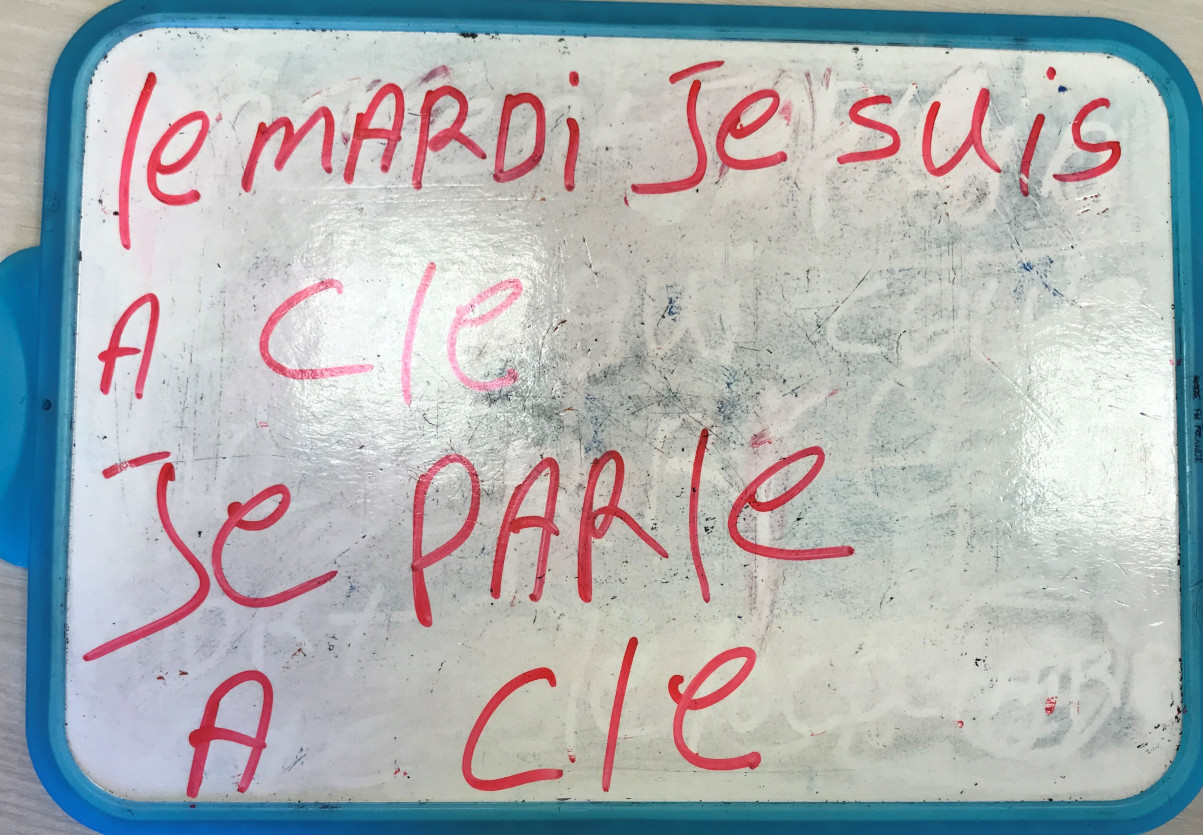 le MARDi Je suis
A Cle
Je PARle
A Cle